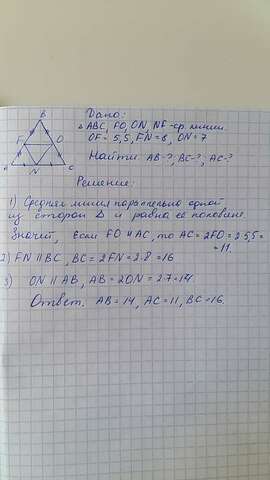 B
F
O
A
N
C
Дано:
△ABC, FO, ON, NF-ср. линии.
OF = 5,5, FN = 8, ON = 7
Найти: AB-?, BC-?, AC-?
Решение:
1) Средняя линия параллельна одной
из сторон △ и равна её половине.
Значит, если FO ∥ AC, то AC = 2FO = 2·5,5=
= 11.
2) FN ∥ BC, BC = 2FN = 2·8 = 16
3) ON ∥ AB, AB = 2ON = 2·7 = 14.
Ответ. AB = 14, AC = 11, BC = 16.